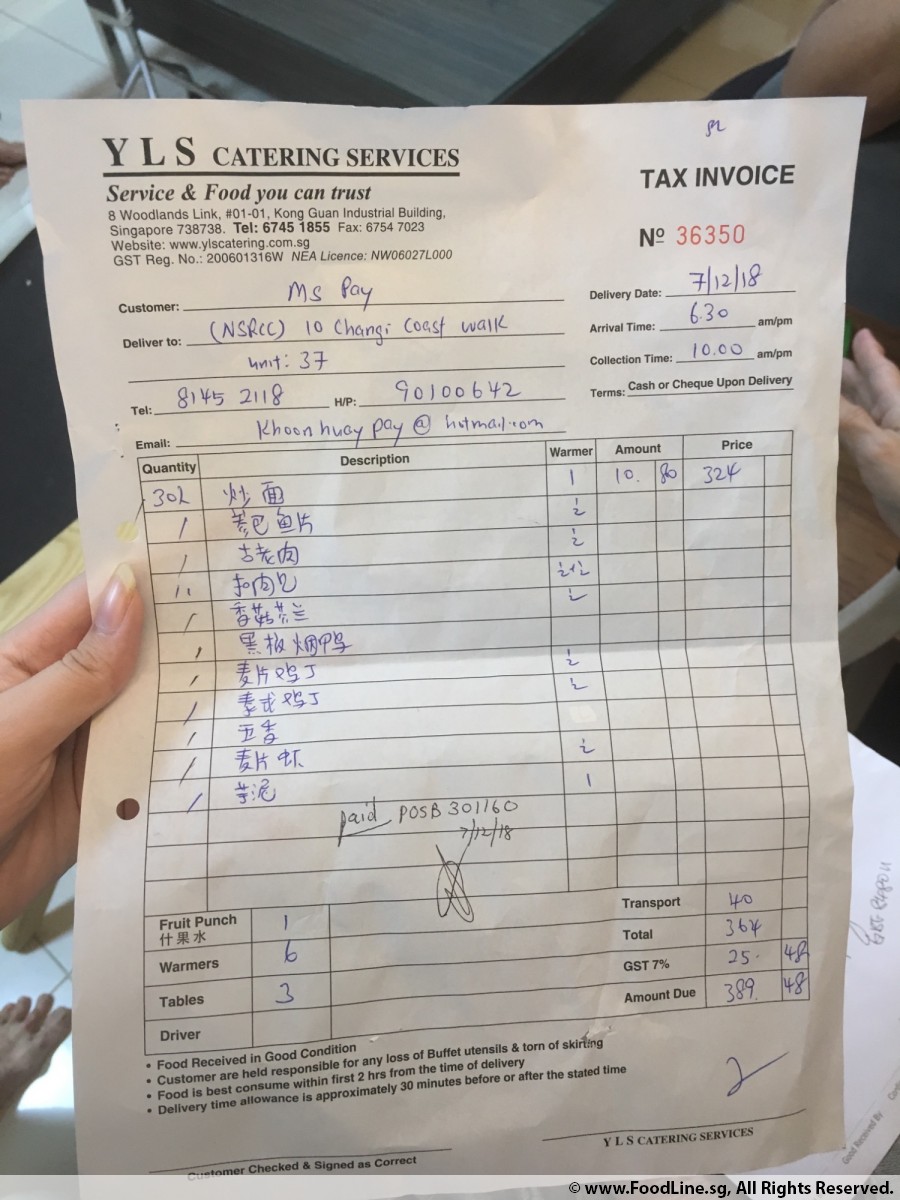 Y L S CATERING SERVICES
Service & Food you can trust
8 Woodlands Link, #01-01, Kong Guan Industrial Building,
Singapore 738738. Tel: 6745 1855 Fax: 6754 7023
Website: www.ylscatering.com.sg
GST Reg. No.: 200601316W NEA Licence: NW06027L000
TAX INVOICE
Nº 36350
Customer: Ms Pay
Deliver to: (NSRCC) 10 Changi Coast Walk
unit: 37
Tel: 8145 2118 H/P: 90100642
Email: Khoonhuay pay @ hotmail.com
Delivery Date: 7/12/18
Arrival Time: 6.30 am/pm
Collection Time: 10.00 am/pm
Terms: Cash or Cheque Upon Delivery
Quantity Description Warmer Amount Price
炒面 1 10. 80 324
/ 峇鱼片 ½
/ 古老肉 ½
扣肉包 ½+½
/ 香菇芥兰 ½
/ 黑椒烟鸭
/ 麦片鸡丁 ½
/ 泰式鸡丁 ½
/ 五香
/ 麦片虾 ½
/ 芋泥 1
paid POSB 301160
7/12/18
Fruit Punch 1
什果水
Warmers 6
Tables 3
Driver
Transport 40
Total 364
GST 7% 25. 48
Amount Due 389. 48
• Food Received in Good Condition
• Customer are held responsible for any loss of Buffet utensils & torn of skirting
• Food is best consume within first 2 hrs from the time of delivery
• Delivery time allowance is approximately 30 minutes before or after the stated time
Customer Checked & Signed as Correct
Y L S CATERING SERVICES
Good Received By
© www.FoodLine.sg, All Rights Reserved.